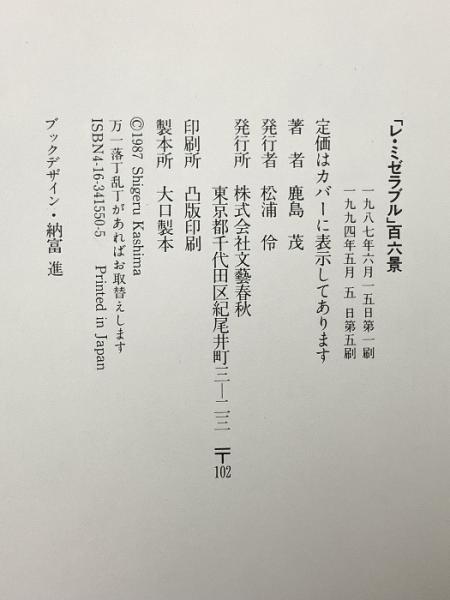 「レ・ミゼラブル」百六景
一九八七年六月一五日第一刷
一九九四年五月 五 日第五刷
定価はカバーに表示してあります
著 者 鹿島 茂
発行者 松浦 伶
発行所 株式会社文藝春秋
東京都千代田区紀尾井町三―二三 〒102
印刷所 凸版印刷
製本所 大口製本
©1987 Shigeru Kashima
万一落丁乱丁があればお取替えします
ISBN4-16-341550-5 Printed in Japan
ブックデザイン・納富 進